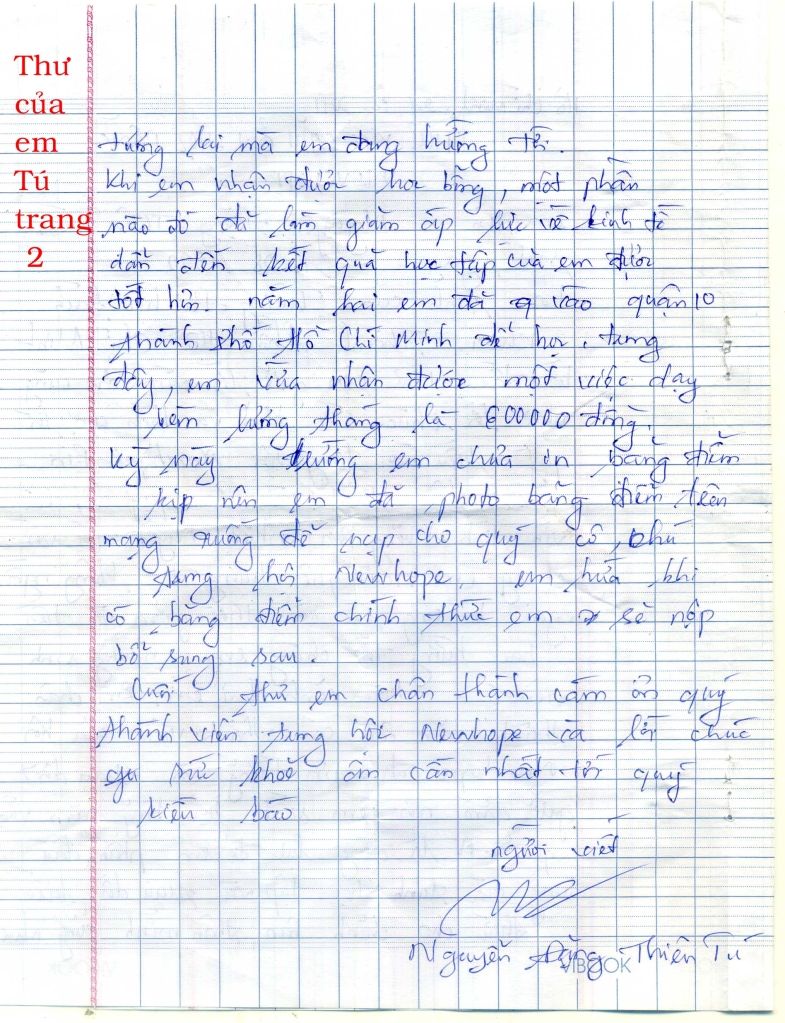 Thư
của
em
Tú
trang
2
tương lai mà em đang hướng tới.
Khi em nhận được học bổng, một phần
nào đó đã làm giảm áp lực về kinh tế
dẫn đến kết quả học tập của em được
tốt hơn. năm hai em đã vào quận 10
thành phố Hồ Chí Minh để học,
đây, em vừa nhận được một việc dạy
kèm lương tháng là 600000 đồng.
Kỳ này trường em chưa in bảng điểm
kịp nên em đã photo bảng điểm trên
mạng xuống để nạp cho quý cô, chú
hội Newhope, em hứa khi
có bảng điểm chính thức em sẽ nộp
bổ sung sau.
Cuối thư em chân thành cảm ơn quý
thành viên hội Newhope và lời chúc
sức khoẻ ân cần nhất tới quý
kiều bào
người viết
Nguyễn Đặng Thiên Tú
VIBOOK